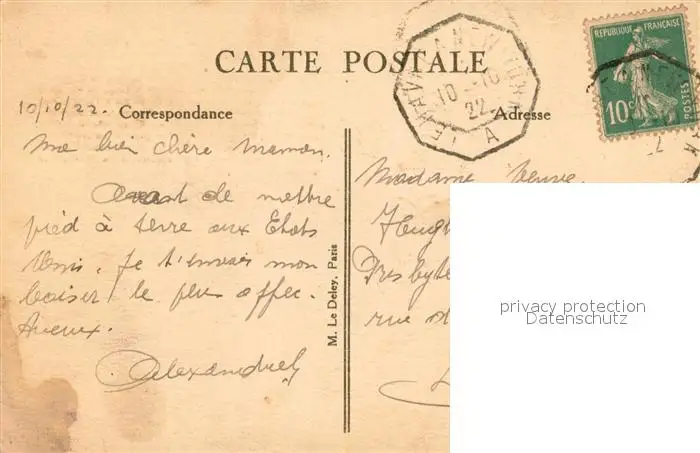 CARTE POSTALE
LE HAVRE A NEW YORK A
10 - 10
22
REPUBLIQUE FRANÇAISE
10c
POSTES
10/10/22. Correspondance
Adresse
Ma bien chère maman.
Avant de mettre
pied à terre aux Etats
Unis. Je t'envoie mon
baiser le plus affec-
tueux.
Alexandre
M. Le Deley, Paris
Madame Veuve
Presbyte
rue
privacy protection
Datenschutz